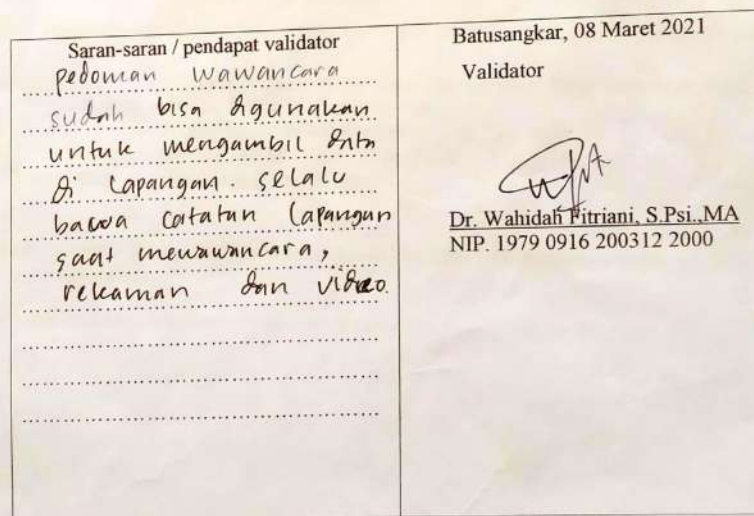 Saran-saran / pendapat validator
pedoman wawancara
sudah bisa digunakan
untuk mengambil data
di lapangan. selalu
bawa catatan lapangan
saat mewawancara,
rekaman dan video.
Batusangkar, 08 Maret 2021
Validator
Dr. Wahidah Fitriani, S.Psi.,MA
NIP. 1979 0916 200312 2000